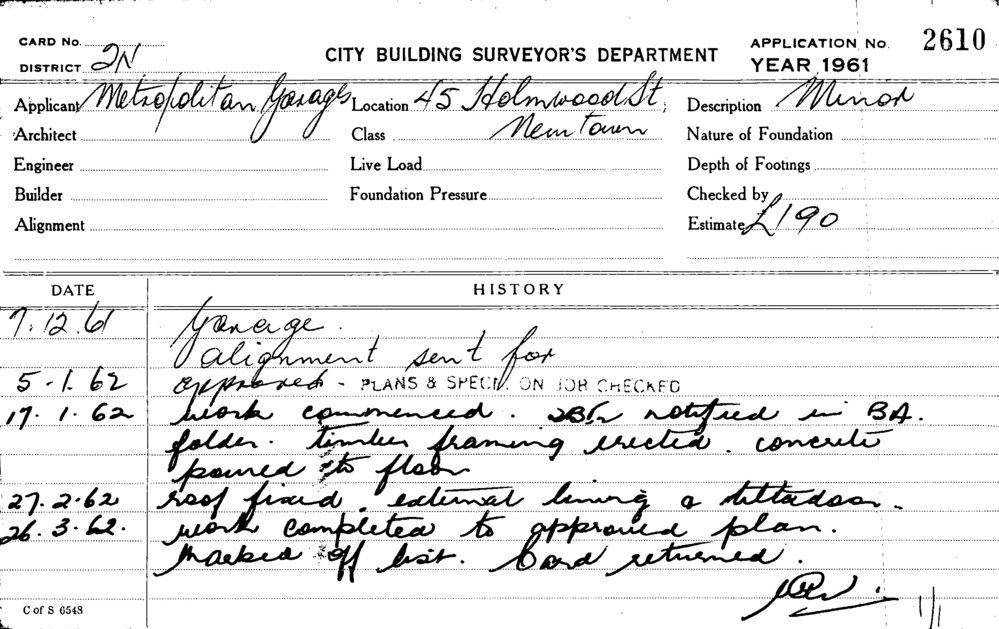 CARD No.
DISTRICT 2N
CITY BUILDING SURVEYOR'S DEPARTMENT
APPLICATION No. 2610
YEAR 1961
Applicant Metropolitan Garages Location 45 Holmwood St, Description Minor
Architect Class Newtown Nature of Foundation
Engineer Live Load Depth of Footings
Builder Foundation Pressure Checked by
Alignment Estimate £190
DATE HISTORY
7.12.61 Garage.
alignment sent for
5-1.62 approved - PLANS & SPECN. ON JOB CHECKED
17.1.62 work commenced. notified in BA.
folder. timber framing erected. concrete
poured to floor
27.2.62 roof fixed. external lining & tiltadoor.
26.3.62. work completed to approved plan.
Marked off list. Card returned.
C of S 6548